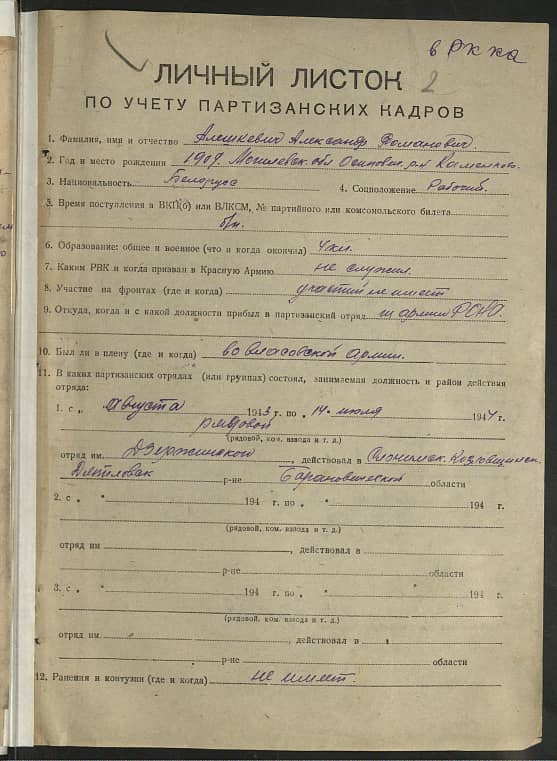 в РККА
ЛИЧНЫЙ ЛИСТОК 2
ПО УЧЕТУ ПАРТИЗАНСКИХ КАДРОВ
1. Фамилия, имя и отчество Алешкевич Александр Романович.
2. Год и место рождения 1909. Могилевск. обл Осипович. р-н Каменка
3. Национальность Белорусс 4. Соцположение Рабочий.
3. Время поступления в ВКП(б) или ВЛКСМ, № партийного или комсомольского билета
б/п.
6. Образование: общее и военное (что и когда окончил) 4 кл.
7. Каким РВК и когда призван в Красную Армию не служил.
8. Участие на фронтах (где и когда) участий не имеет
9. Откуда, когда и с какой должности прибыл в партизанский отряд из армии РОНА.
10. Был ли в плену (где и когда) во власовской армии.
11. В каких партизанских отрядах (или группах) состоял, занимаемая должность и район действия
отряда:
1. с „ августа 1943 г. по „ 14 " июля 1944 г.
рядовой
(рядовой, ком. взвода и т. д.)
отряд им. Дзержинского, действовал в Слонимск. Козловщинск.
Дятловск р-не Барановичской области
2. с „ " 194 г. по „ " 194 г.
(рядовой, ком. взвода и т. д.)
отряд им , действовал в
р-не области
3. с „ " 194 г. по „ " 194 г.
(рядовой, ком. взвода и т. д.)
отряд им. , действовал в
р-не области
12. Ранения и контузии (где и когда) не имеет.